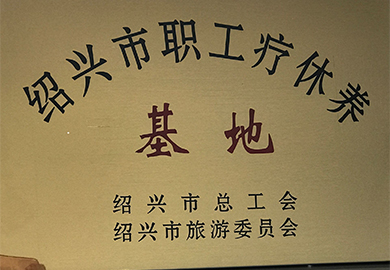 绍兴市职工疗休养
基地
绍兴市总工会
绍兴市旅游委员会